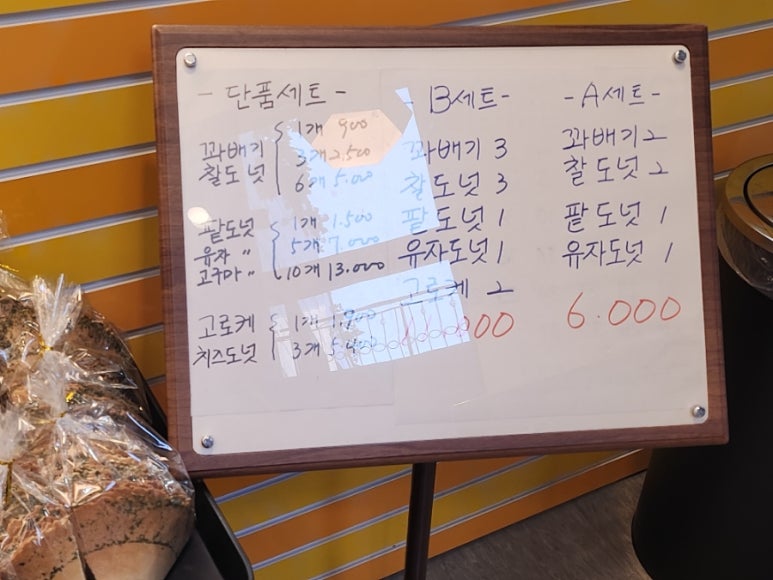 - 단품세트 -
꽈배기
찰도넛
1개 900
3개 2.500
6개 5.000
팥도넛
유자 〃
고구마 〃
1개 1.500
5개 7.000
10개 13.000
고로케
치즈도넛
1개
3개
- B세트 -
꽈배기 3
찰도넛 3
팥도넛 1
유자도넛 1
고로케 2
- A세트 -
꽈배기 2
찰도넛 2
팥도넛 1
유자도넛 1
6.000